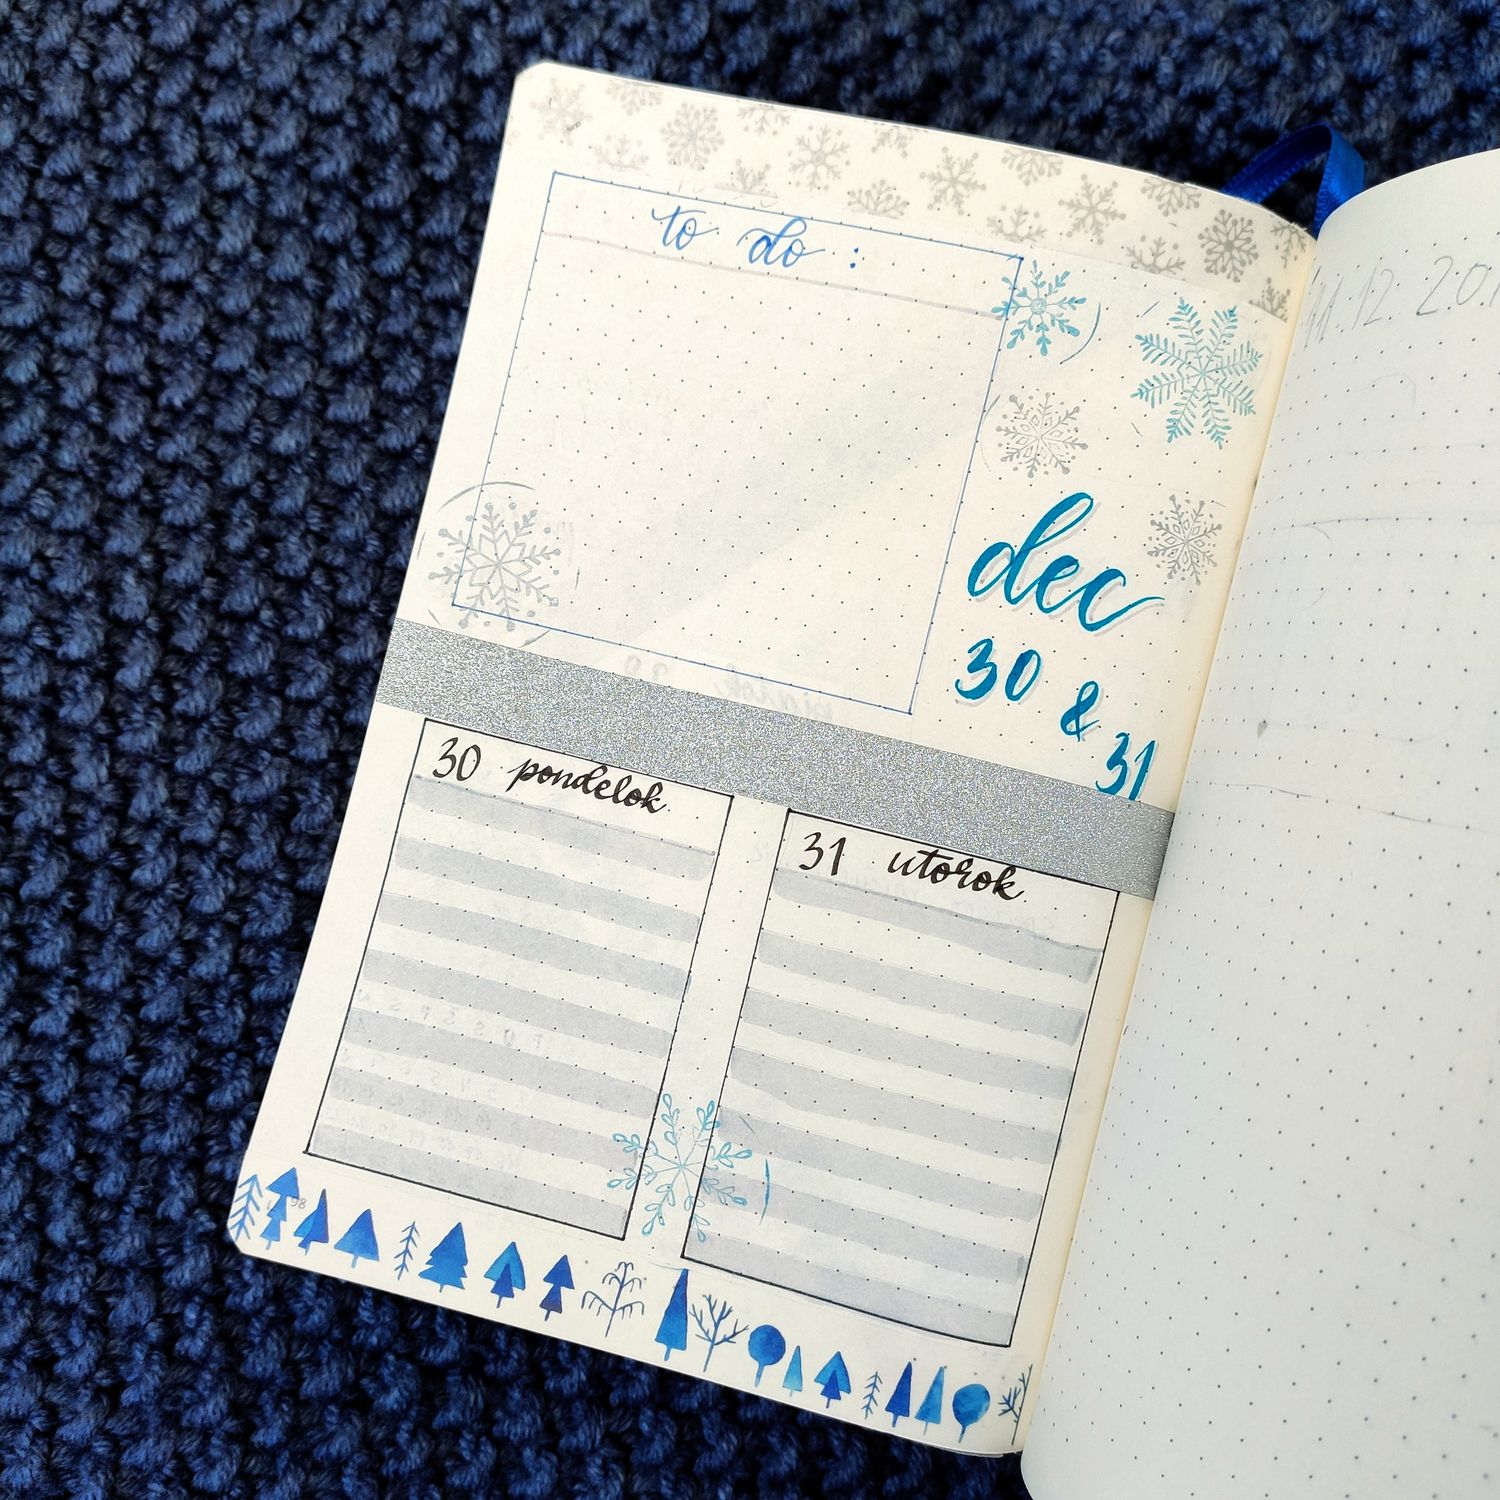 to do :
dec
30 & 31
30 pondelok
31 utorok
98
11.12.201